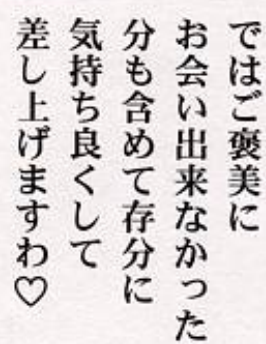 ではご褒美に
お会い出来なかった
分も含めて存分に
気持ち良くして
差し上げますわ♡